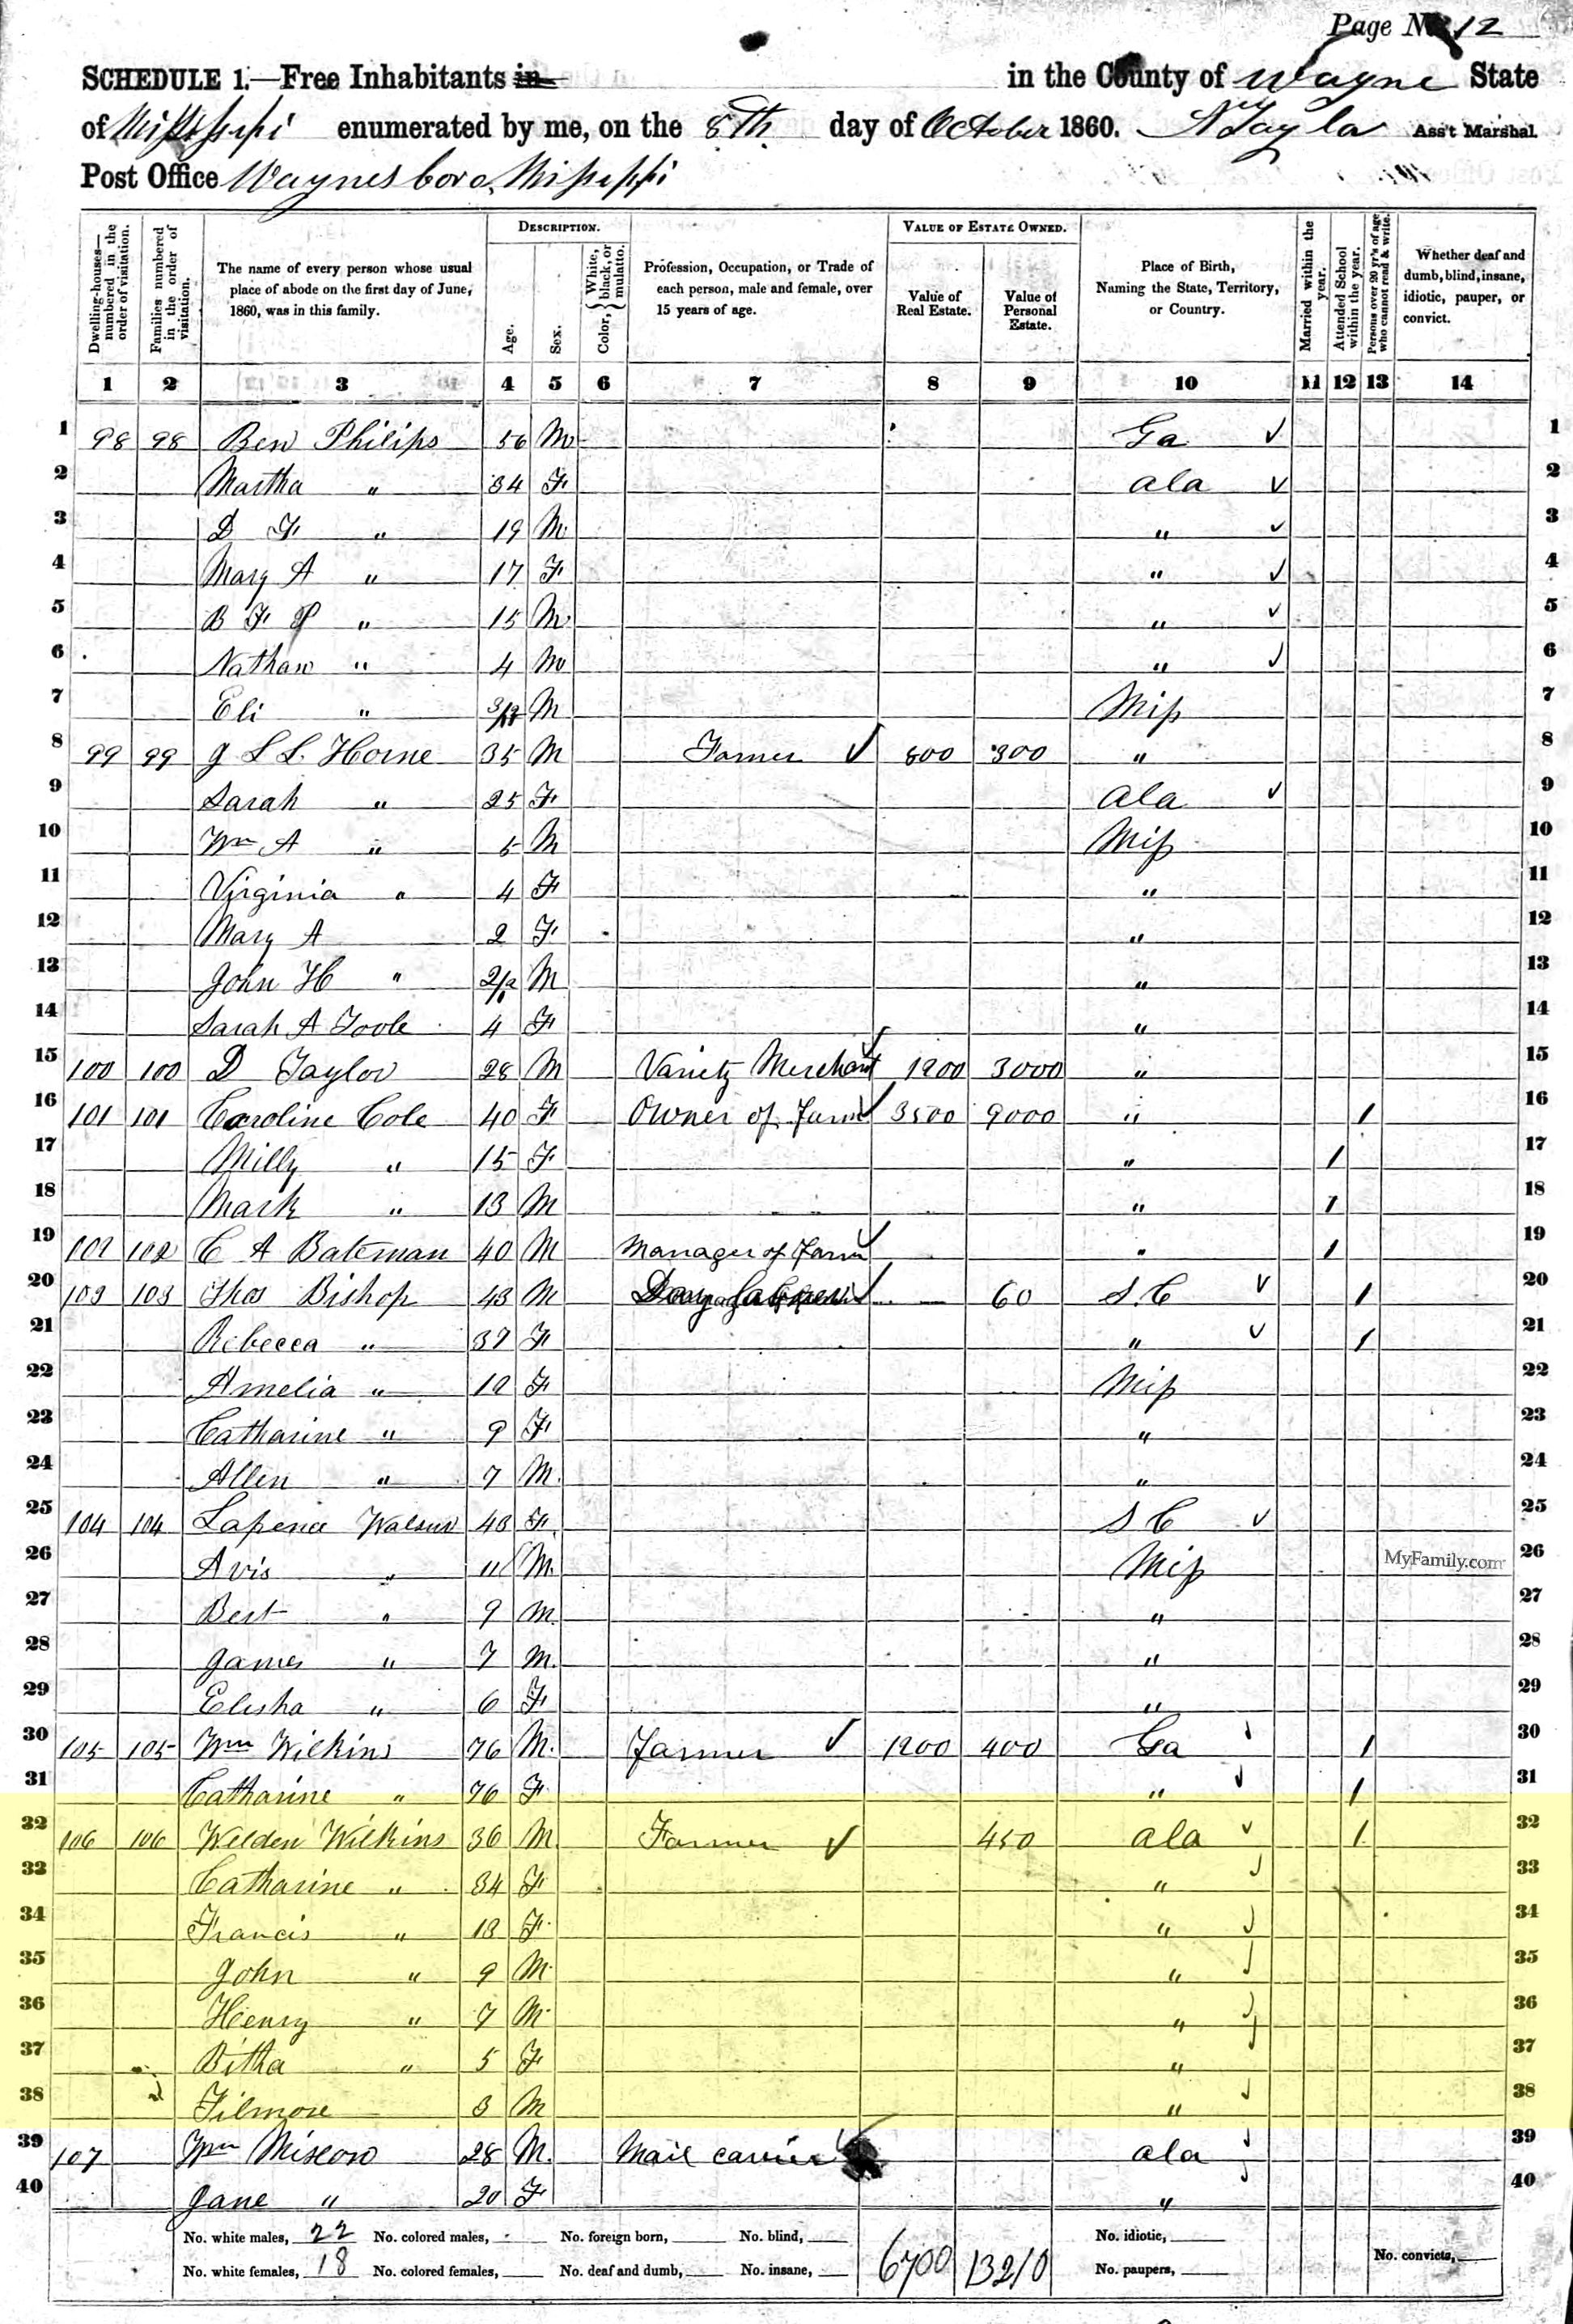 Page No 12
SCHEDULE 1.—Free Inhabitants in in the County of Wayne State
of Mississippi enumerated by me, on the 8th day of October 1860. Ass't Marshal.
Post Office Waynesboro, Mississippi
Dwelling-houses—numbered in the order of visitation.
Families numbered in the order of visitation.
The name of every person whose usual place of abode on the first day of June, 1860, was in this family.
DESCRIPTION.
Age.
Sex.
Color, { White, black, or mulatto.
Profession, Occupation, or Trade of each person, male and female, over 15 years of age.
VALUE OF ESTATE OWNED.
Value of Real Estate.
Value of Personal Estate.
Place of Birth, Naming the State, Territory, or Country.
Married within the year.
Attended School within the year.
Persons over 20 y'rs of age who cannot read & write.
Whether deaf and dumb, blind, insane, idiotic, pauper, or convict.
1 2 3 4 5 6 7 8 9 10 11 12 13 14
1 98 98 Ben Philips 56 M Ga 1
2 Martha " 34 F Ala 2
3 D F " 19 M " 3
4 Mary A " 17 F " 4
5 B F P " 15 M " 5
6 Nathan " 4 M " 6
7 Eli " 3/12 M Miss 7
8 99 99 J L L Horne 35 M Farmer 800 300 " 8
9 Sarah " 25 F Ala 9
10 Wm A " 5 M Miss 10
11 Virginia " 4 F " 11
12 Mary A 2 F " 12
13 John H " 2/12 M " 13
14 Sarah A Toole 4 F " 14
15 100 100 D Taylor 28 M Variety Merchant 1200 3000 " 15
16 101 101 Caroline Cole 40 F Owner of Farm 3500 9000 " / 16
17 Milly " 15 F " / 17
18 Mark " 13 M " / 18
19 102 102 C A Bateman 40 M Manager of Farm " / 19
20 103 103 Thos Bishop 43 M Day 60 S.C / 20
21 Rebecca " 37 F " / 21
22 Amelia " 12 F Miss 22
23 Catharine " 9 F " 23
24 Allen " 7 M " 24
25 104 104 43 F S C 25
26 Avis " 11 M Miss MyFamily.com 26
27 Best " 9 M " 27
28 James " 7 M " 28
29 Elisha " 6 F " 29
30 105 105 Wm Wilkins 76 M Farmer 1200 400 Ga / 30
31 Catharine " 76 F " / 31
32 106 106 Welden Wilkins 36 M Farmer 450 Ala / 32
33 Catharine " 34 F " 33
34 Francis " 13 F " 34
35 John " 9 M " 35
36 Henry " 7 M " 36
37 Bitha " 5 F " 37
38 Filmore 3 M " 38
39 107 Wm 28 M Mail carrier Ala 39
40 Jane " 20 F " 40
No. white males, 22 No. colored males, No. foreign born, No. blind, 6700 13210 No. idiotic,
No. white females, 18 No. colored females, No. deaf and dumb, No. insane, No. paupers, No. convicts,